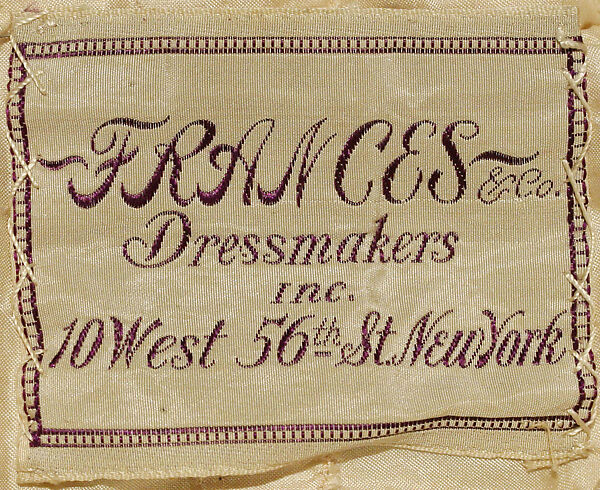 FRANCES & Co.
Dressmakers
inc.
10 West 56th St. New York